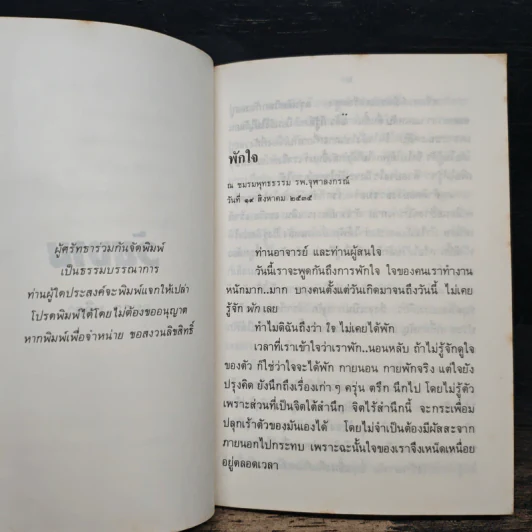 ผู้ศรัทธาร่วมกันจัดพิมพ์
เป็นธรรมบรรณาการ
ท่านผู้ใดประสงค์จะพิมพ์แจกให้เปล่า
โปรดพิมพ์ได้โดยไม่ต้องขออนุญาต
หากพิมพ์เพื่อจำหน่าย ขอสงวนลิขสิทธิ์
พักใจ
ณ ชมรมพุทธธรรม รพ.จุฬาลงกรณ์
วันที่ ๑๙ สิงหาคม ๒๕๓๕
ท่านอาจารย์ และท่านผู้สนใจ
วันนี้เราจะพูดกันถึงการพักใจ ใจของคนเราทำงาน
หนักมาก..มาก บางคนตั้งแต่วันเกิดมาจนถึงวันนี้ ไม่เคย
รู้จัก พัก เลย
ทำไมดิฉันถึงว่า ใจ ไม่เคยได้พัก
เวลาที่เราเข้าใจว่าเราพัก..นอนหลับ ถ้าไม่รู้จักดูใจ
ของตัว ก็ใช่ว่าใจจะได้พัก กายนอน กายพักจริง แต่ใจยัง
ปรุงคิด ยังนึกถึงเรื่องเก่า ๆ ครุ่น ตรึก นึกไป โดยไม่รู้ตัว
เพราะส่วนที่เป็นจิตใต้สำนึก จิตไร้สำนึกนี้ จะกระเพื่อม
ปลุกเร้าตัวของมันเองได้ โดยไม่จำเป็นต้องมีผัสสะจาก
ภายนอกไปกระทบ เพราะฉะนั้นใจของเราจึงเหน็ดเหนื่อย
อยู่ตลอดเวลา